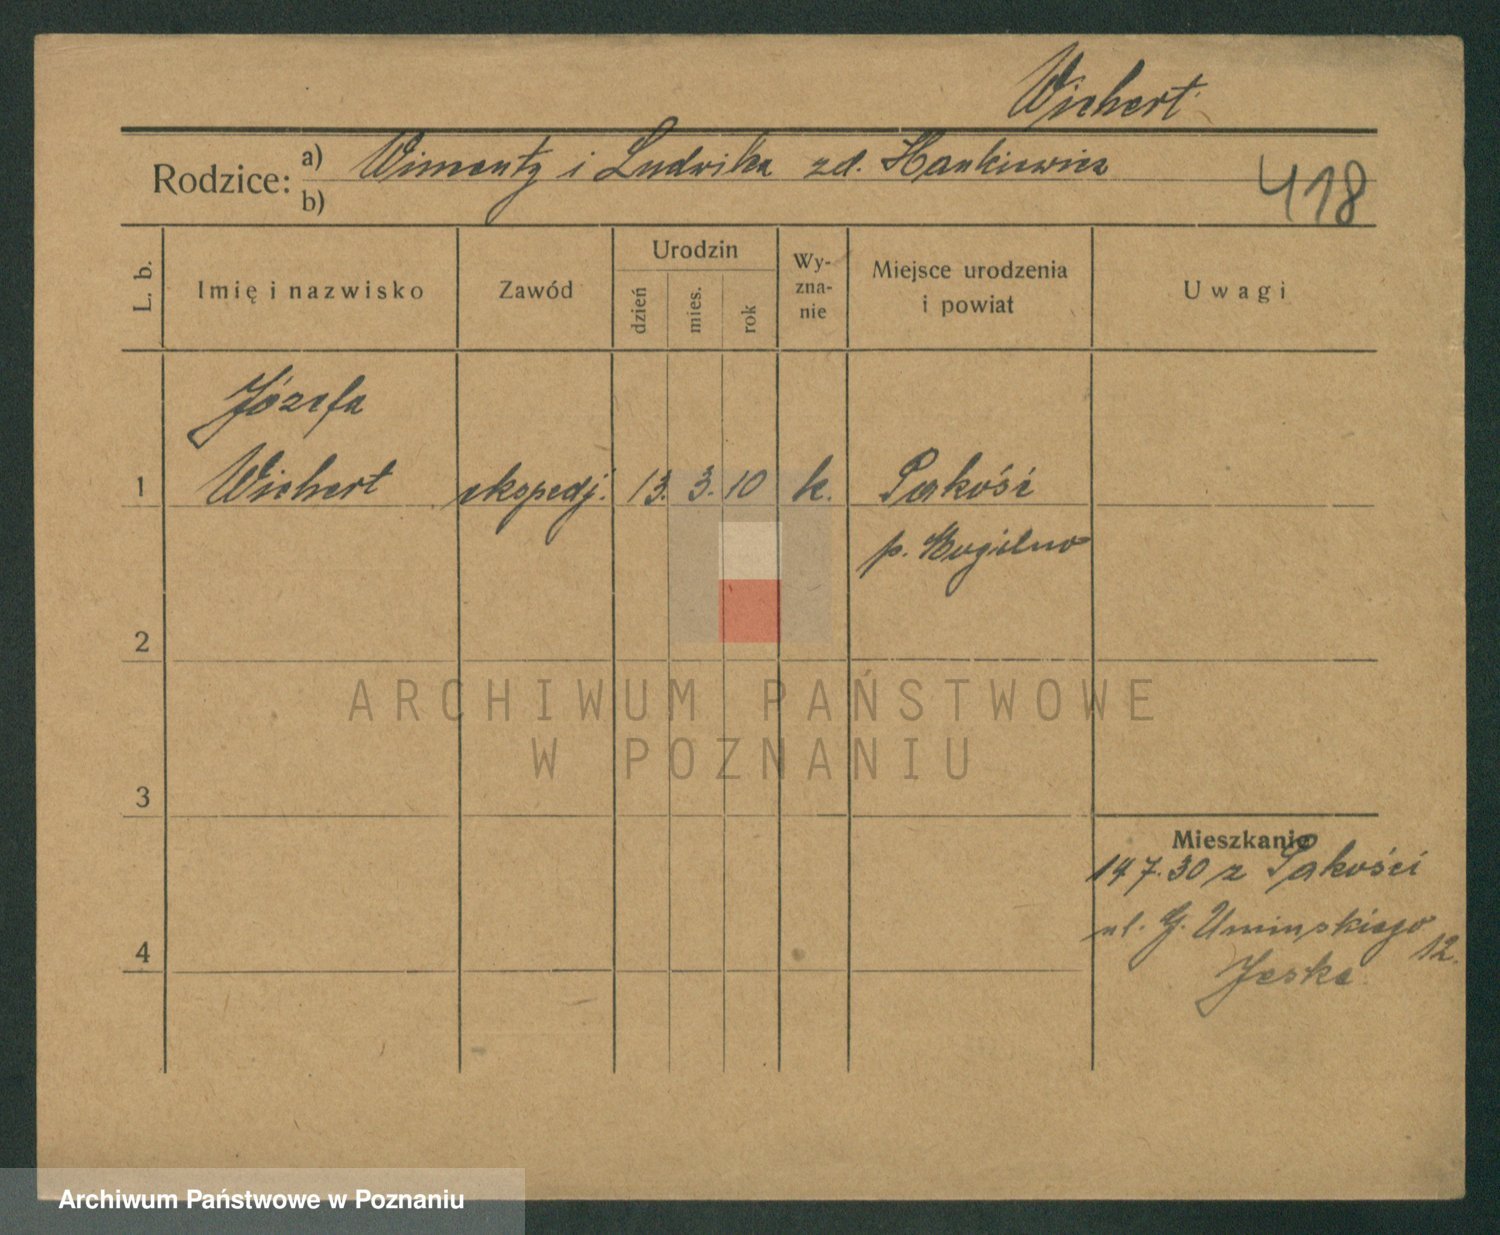 Wichert
Rodzice: a) Wincenty i Ludwika zd. Hankiewicz
b)
418
L. b.
Imię i nazwisko
Zawód
Urodzin
dzień
mies.
rok
Wy-
zna-
nie
Miejsce urodzenia
i powiat
Uwagi
Józefa
1 Wichert ekspedj. 13. 3. 10 k. Pakość
p. Mogilno
2
ARCHIWUM PAŃSTWOWE
W POZNANIU
3
Mieszkanie
14 7. 30 z Pakości
ul. G. Umińskiego 12.
4
Jeske
Archiwum Państwowe w Poznaniu